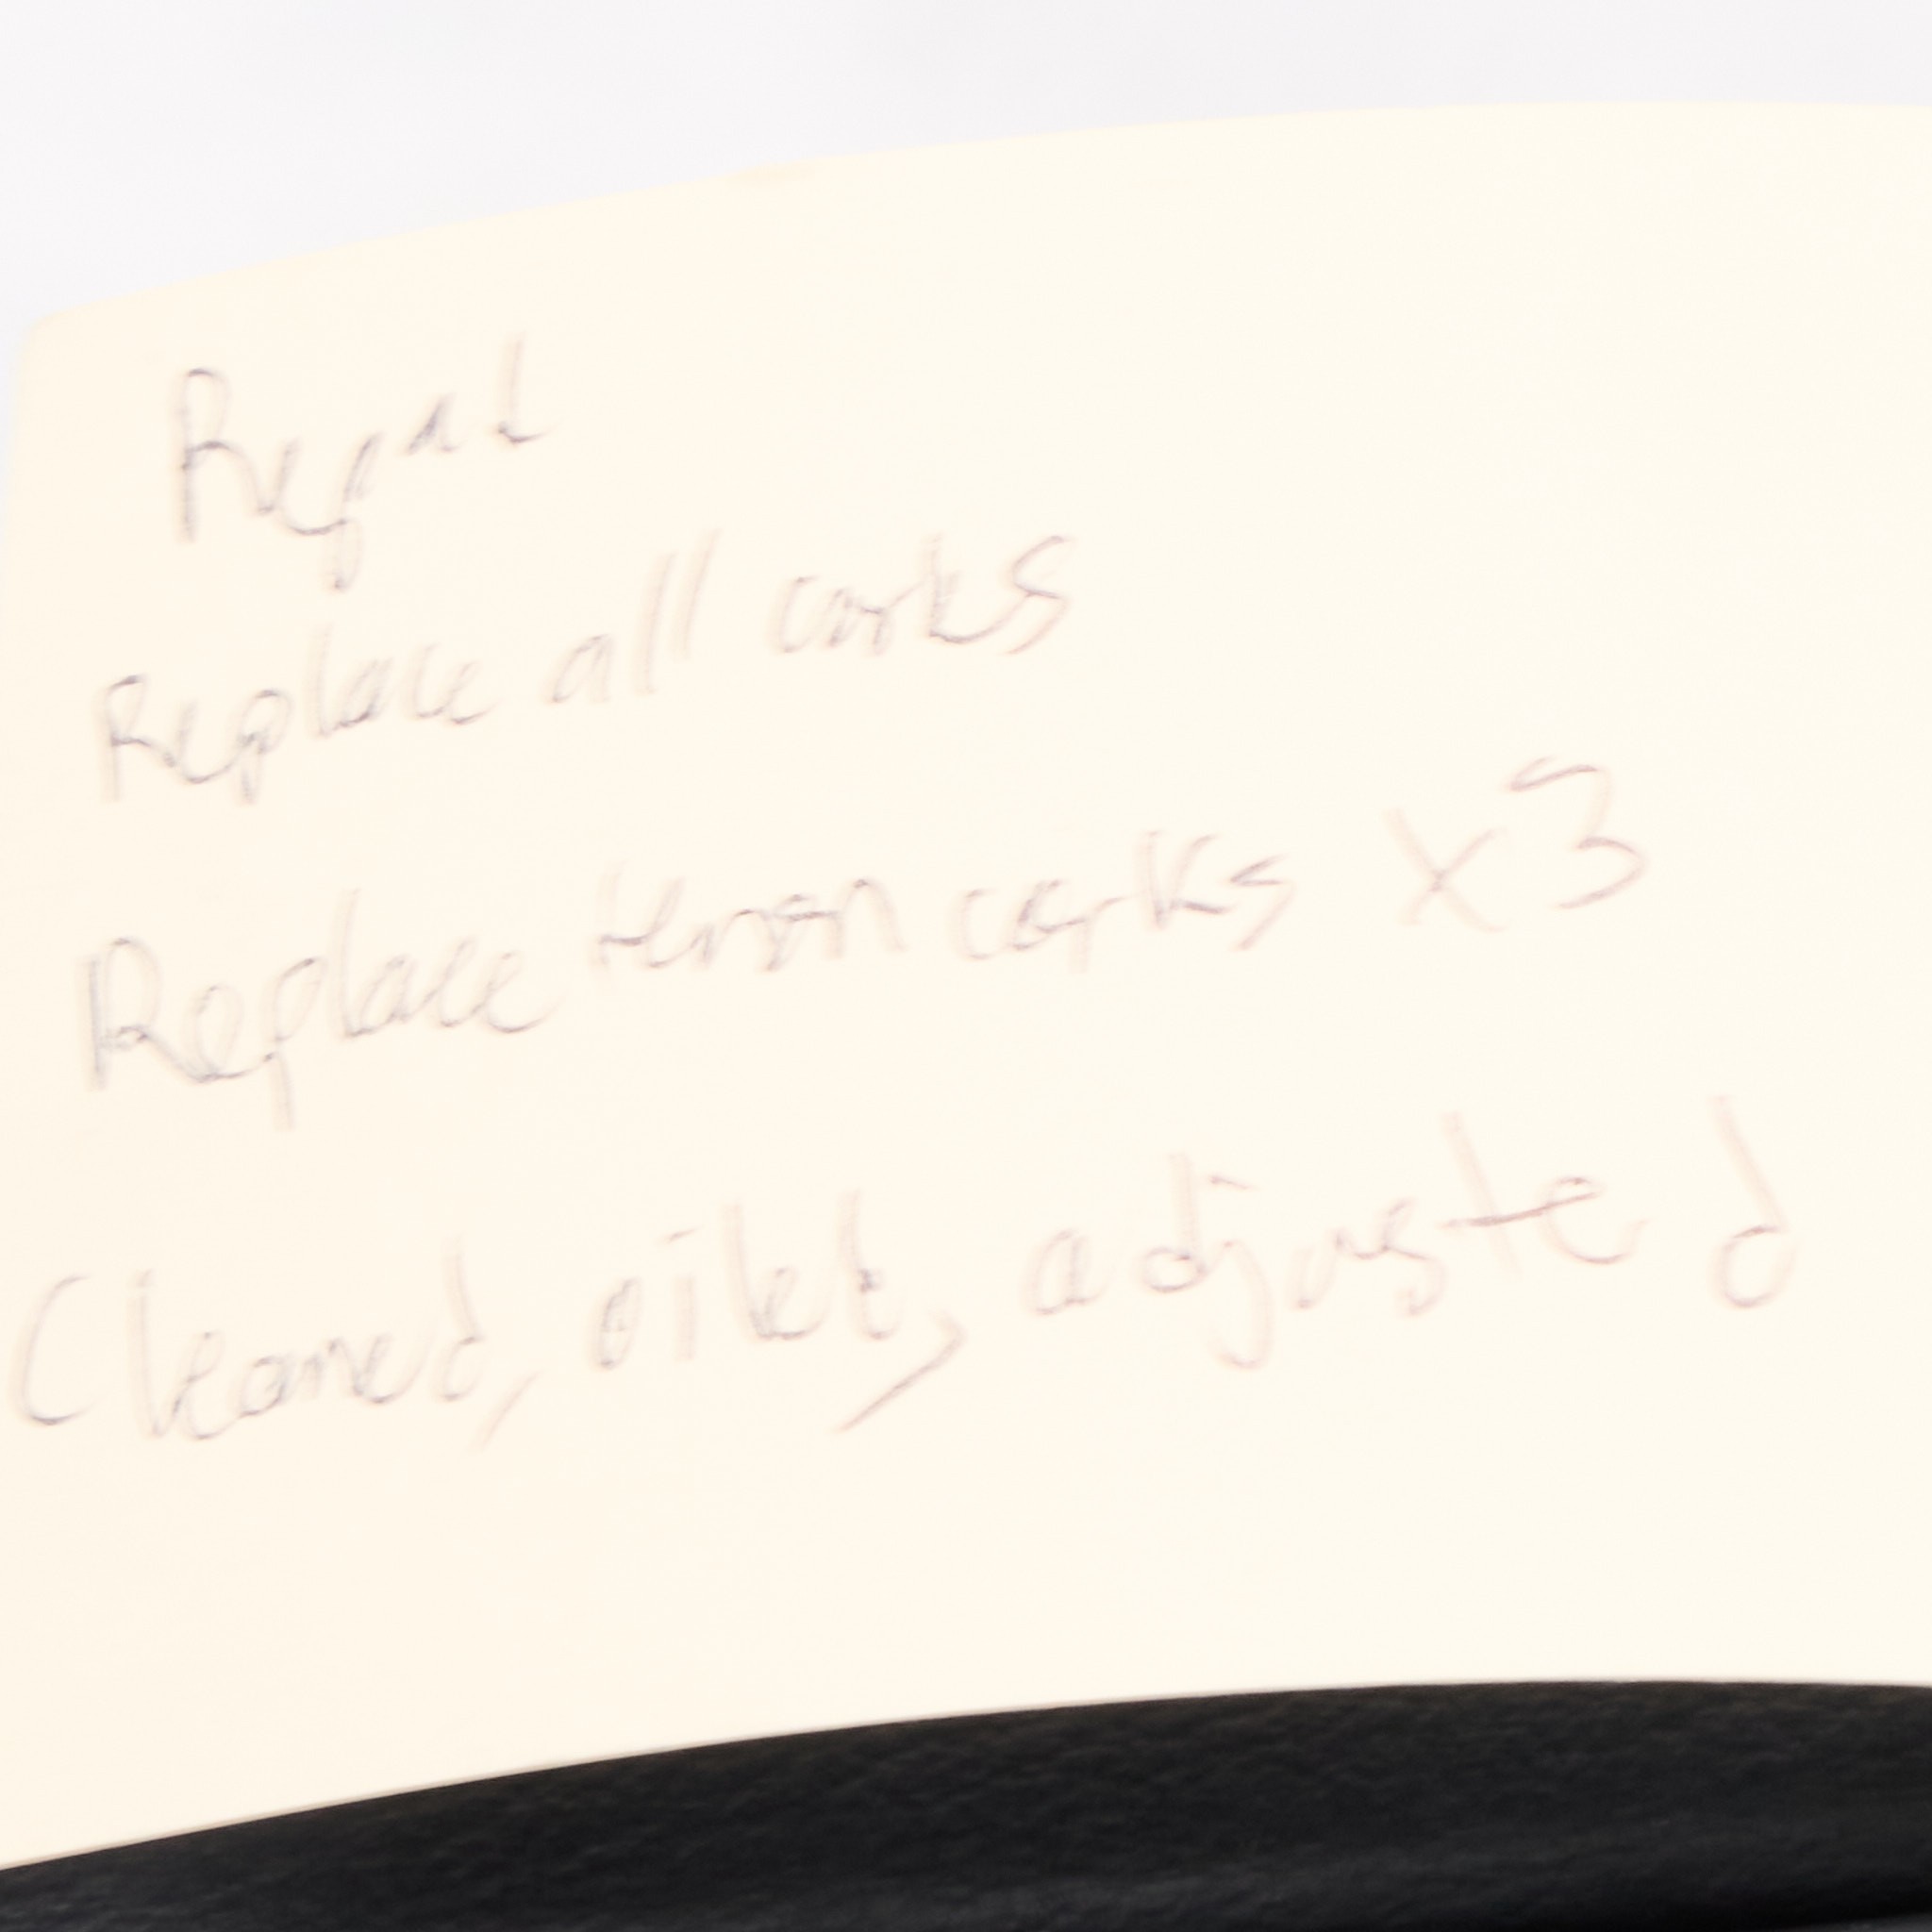 Repad
Replace all corks
Replace tenon corks x3
Cleaned, oiled, adjusted